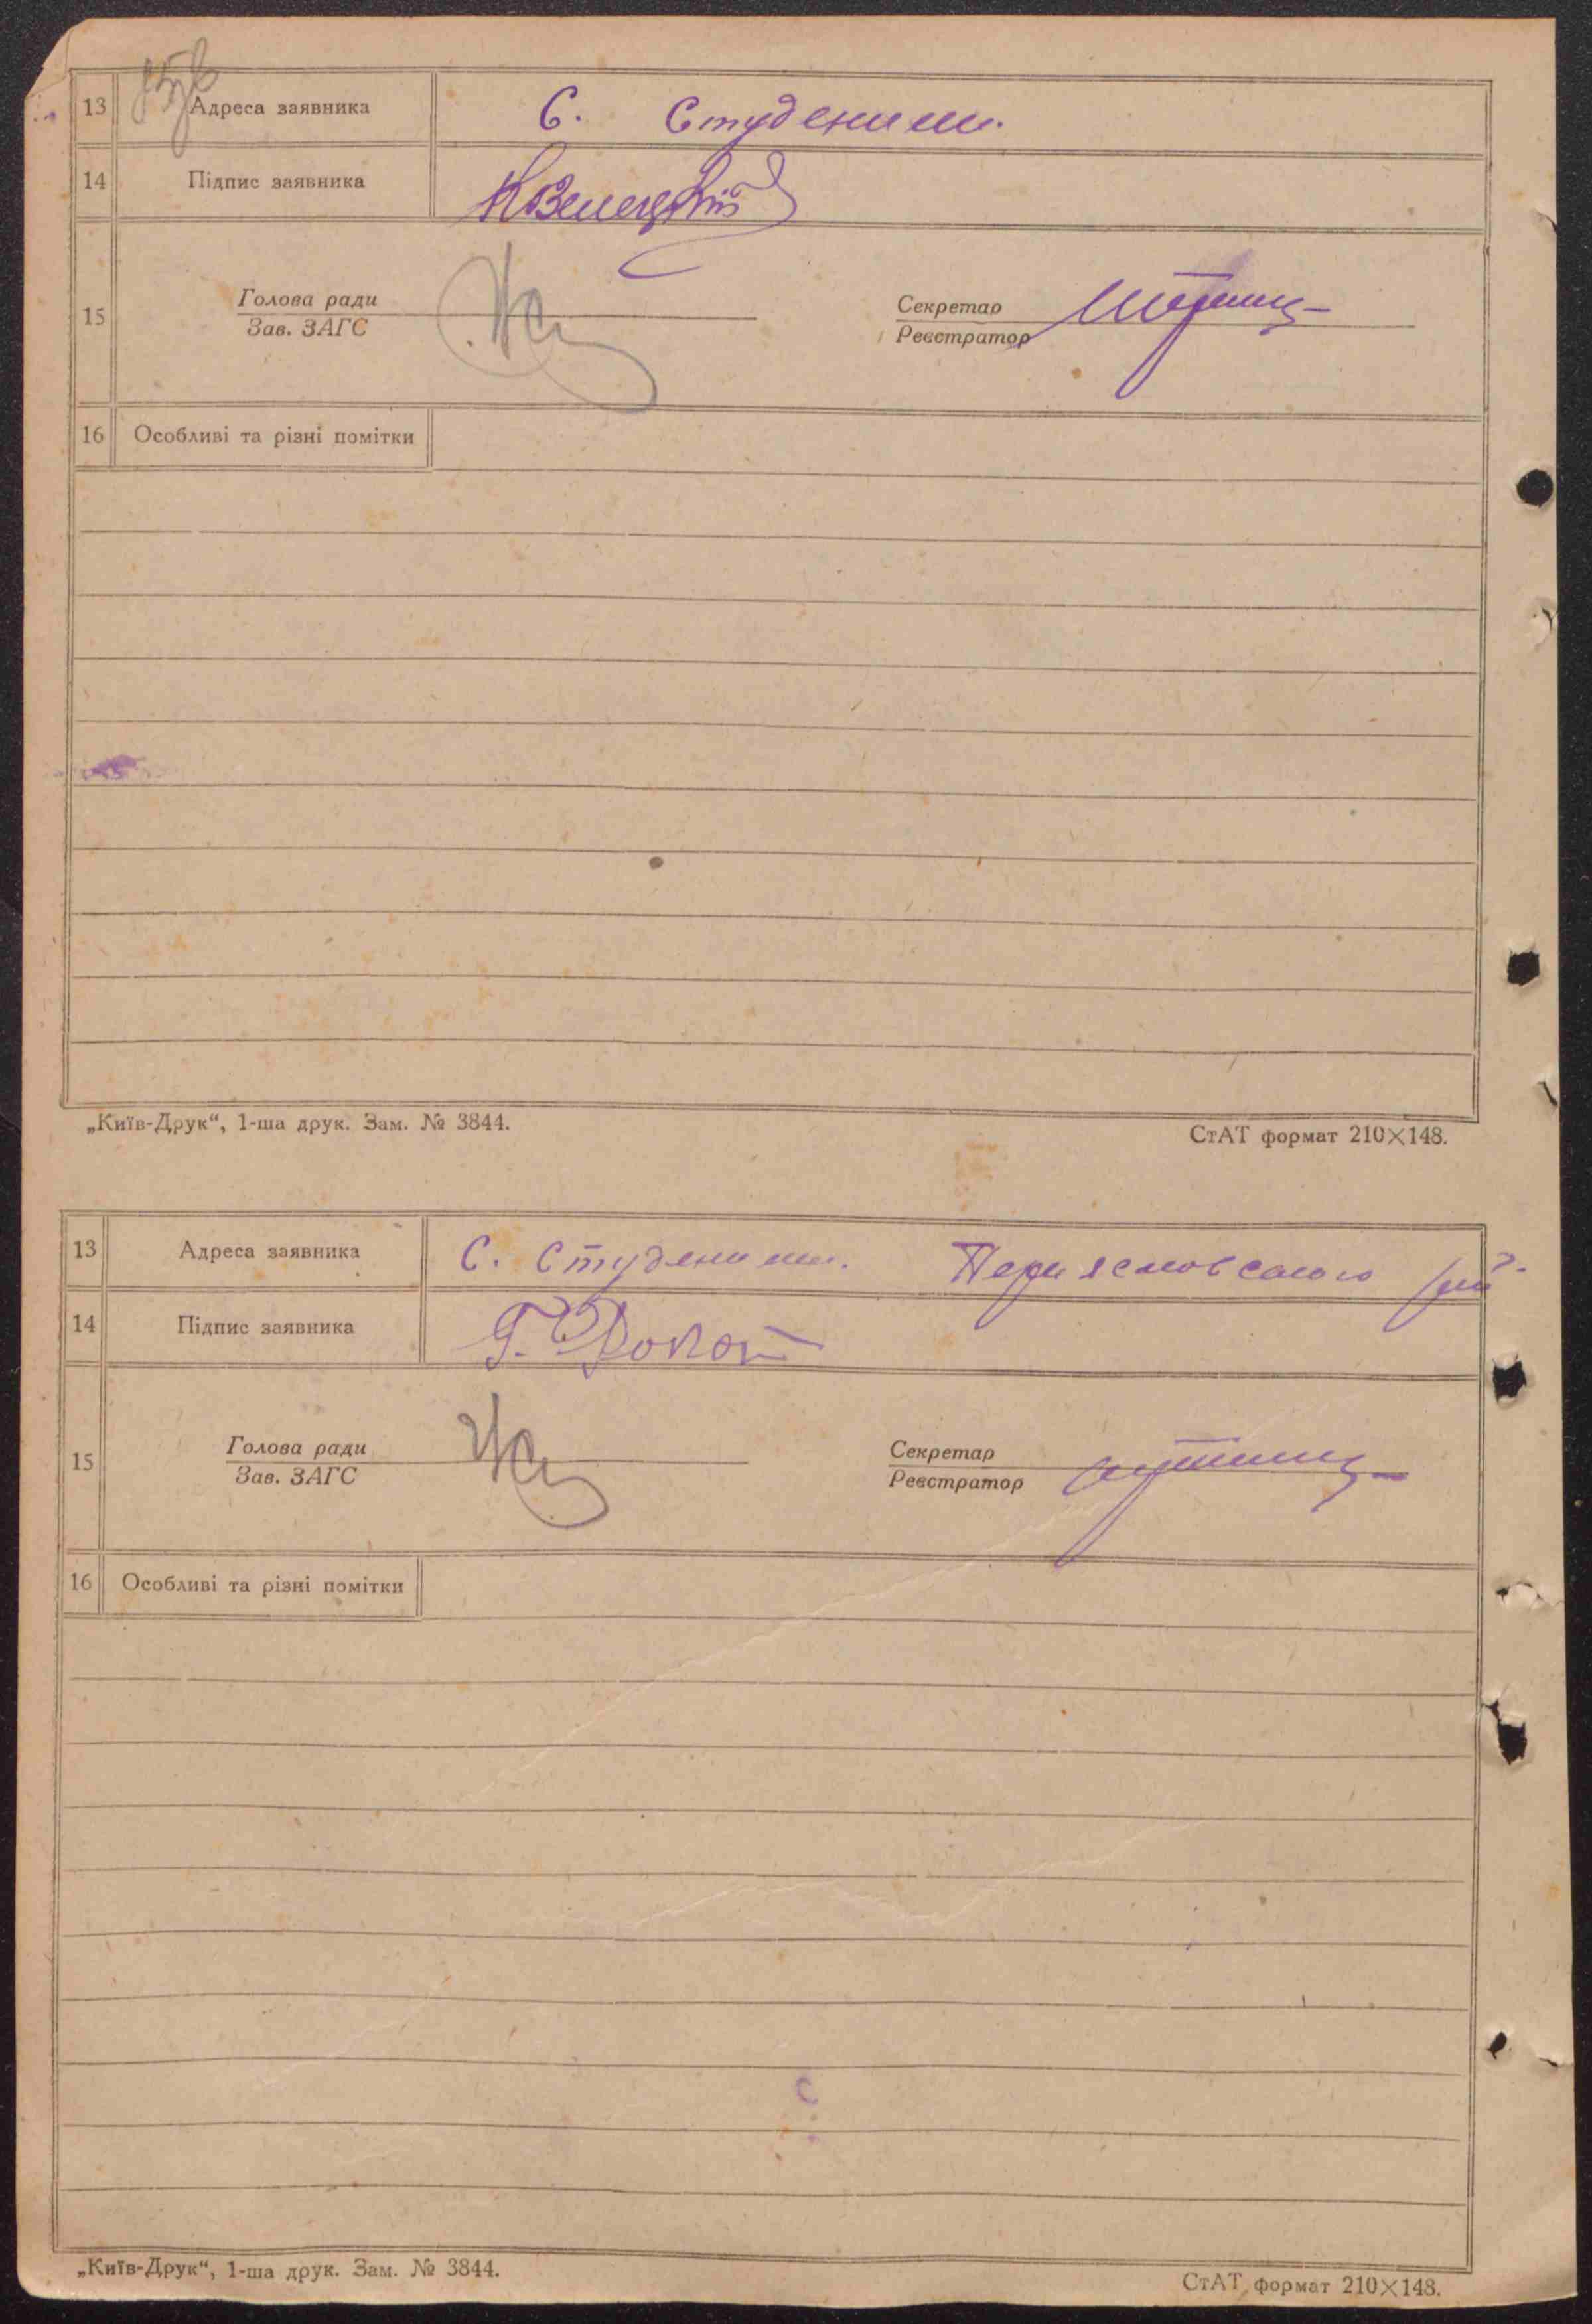 13 Адреса заявника С. Студеники.
14 Підпис заявника
15 Голова ради Секретар
Зав. ЗАГС Реєстратор
16 Особливі та різні помітки
„Київ-Друк“, 1-ша друк. Зам. № 3844. СтАТ формат 210×148.
13 Адреса заявника С. Студеники.
14 Підпис заявника
15 Голова ради Секретар
Зав. ЗАГС Реєстратор
16 Особливі та різні помітки
„Київ-Друк“, 1-ша друк. Зам. № 3844. СтАТ формат 210×148.